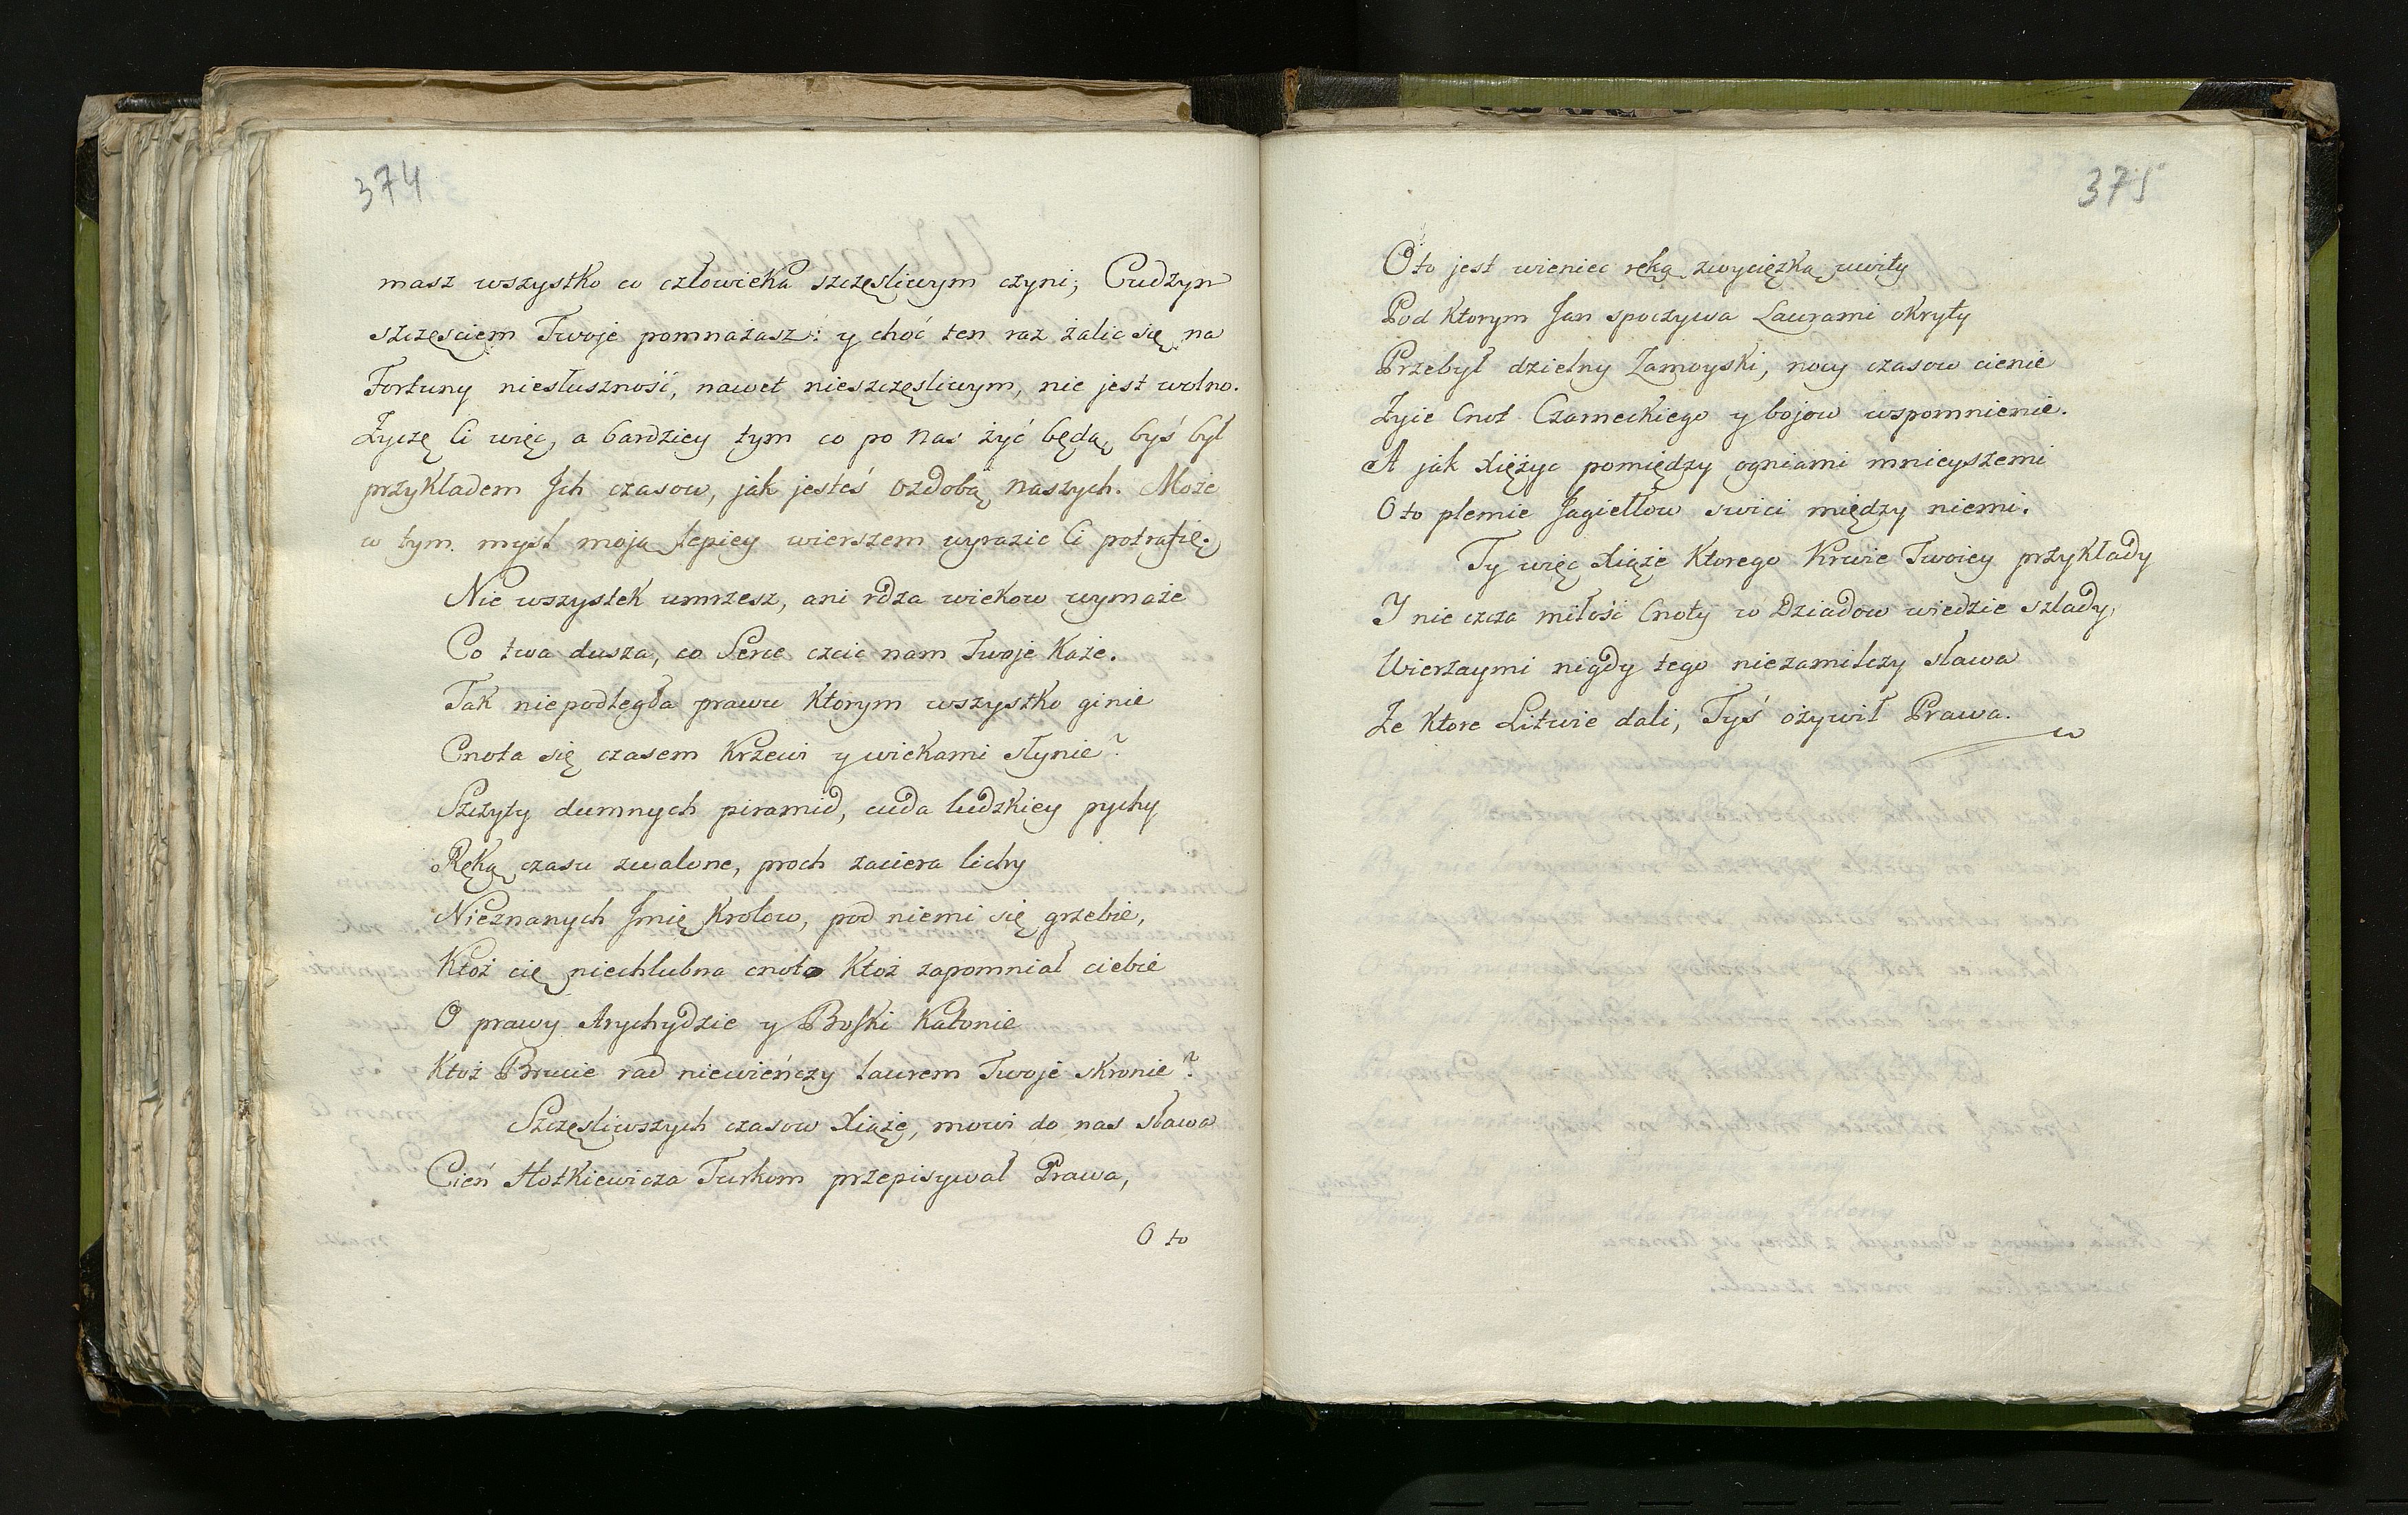 374
masz wszystko co człowieka szczęsliwym czyni; Cudzym
szczęsciem Twoje pomnażasz: y choć ten raz żalic się na
Fortuny niesłuszność, nawet nieszczęsliwym, nie jest wolno.
Życzę Ci więc, a bardziey tym co po nas żyć będą, byś był
przykładem Ich czasow, jak jesteś ozdobą naszych. Może
w tym myśl moją lepiey wierszem wyrazic Ci potrafię.
Nie wszystek umrzesz, ani rdza wiekow wymaże
Co twa dusza, co Serce czcic nam Twoje każe.
Tak niepodległa prawu ktorym wszystko ginie
Cnota się czasem krzewi y wiekami słynie?
Szczyty dumnych piramid, cuda ludzkiey pychy
Ręką czasu zwalone, proch zaciera lichy
Nieznanych Imię krolow, pod niemi się grzebie,
Ktoż cię niechlubna cnoto ktoż zapomniał ciebie
O prawy Arychydzie y Boski Katonie
Ktoż Brucie rad niewieńczy laurem Twoje skronie?
Szczęsliwszych czasow Xiąże, mowi do nas sława
Cień Hotkiewicza Turkom przepisywał Prawa,
O to
375
Oto jest wieniec ręką zwycięzką uwity
Pod ktorym Jan spoczywa Laurami okryty
Przebył dzielny Zamoyski, nocy czasow cienie
Żyie Cnot Czarneckiego y bojow wspomnienie.
A jak Xiężyc pomiędzy ogniami mnieyszemi
O to plemie Jagiełłow swieci między niemi.
Ty więc Xiąże ktorego krwie Twoiey przykłady
I nie czcza miłość Cnoty w Dziadow wiedzie szlady,
Wierzaymi nigdy tego niezamilczy sława
Że ktore Litwie dali, Tyś ożywił Prawa.